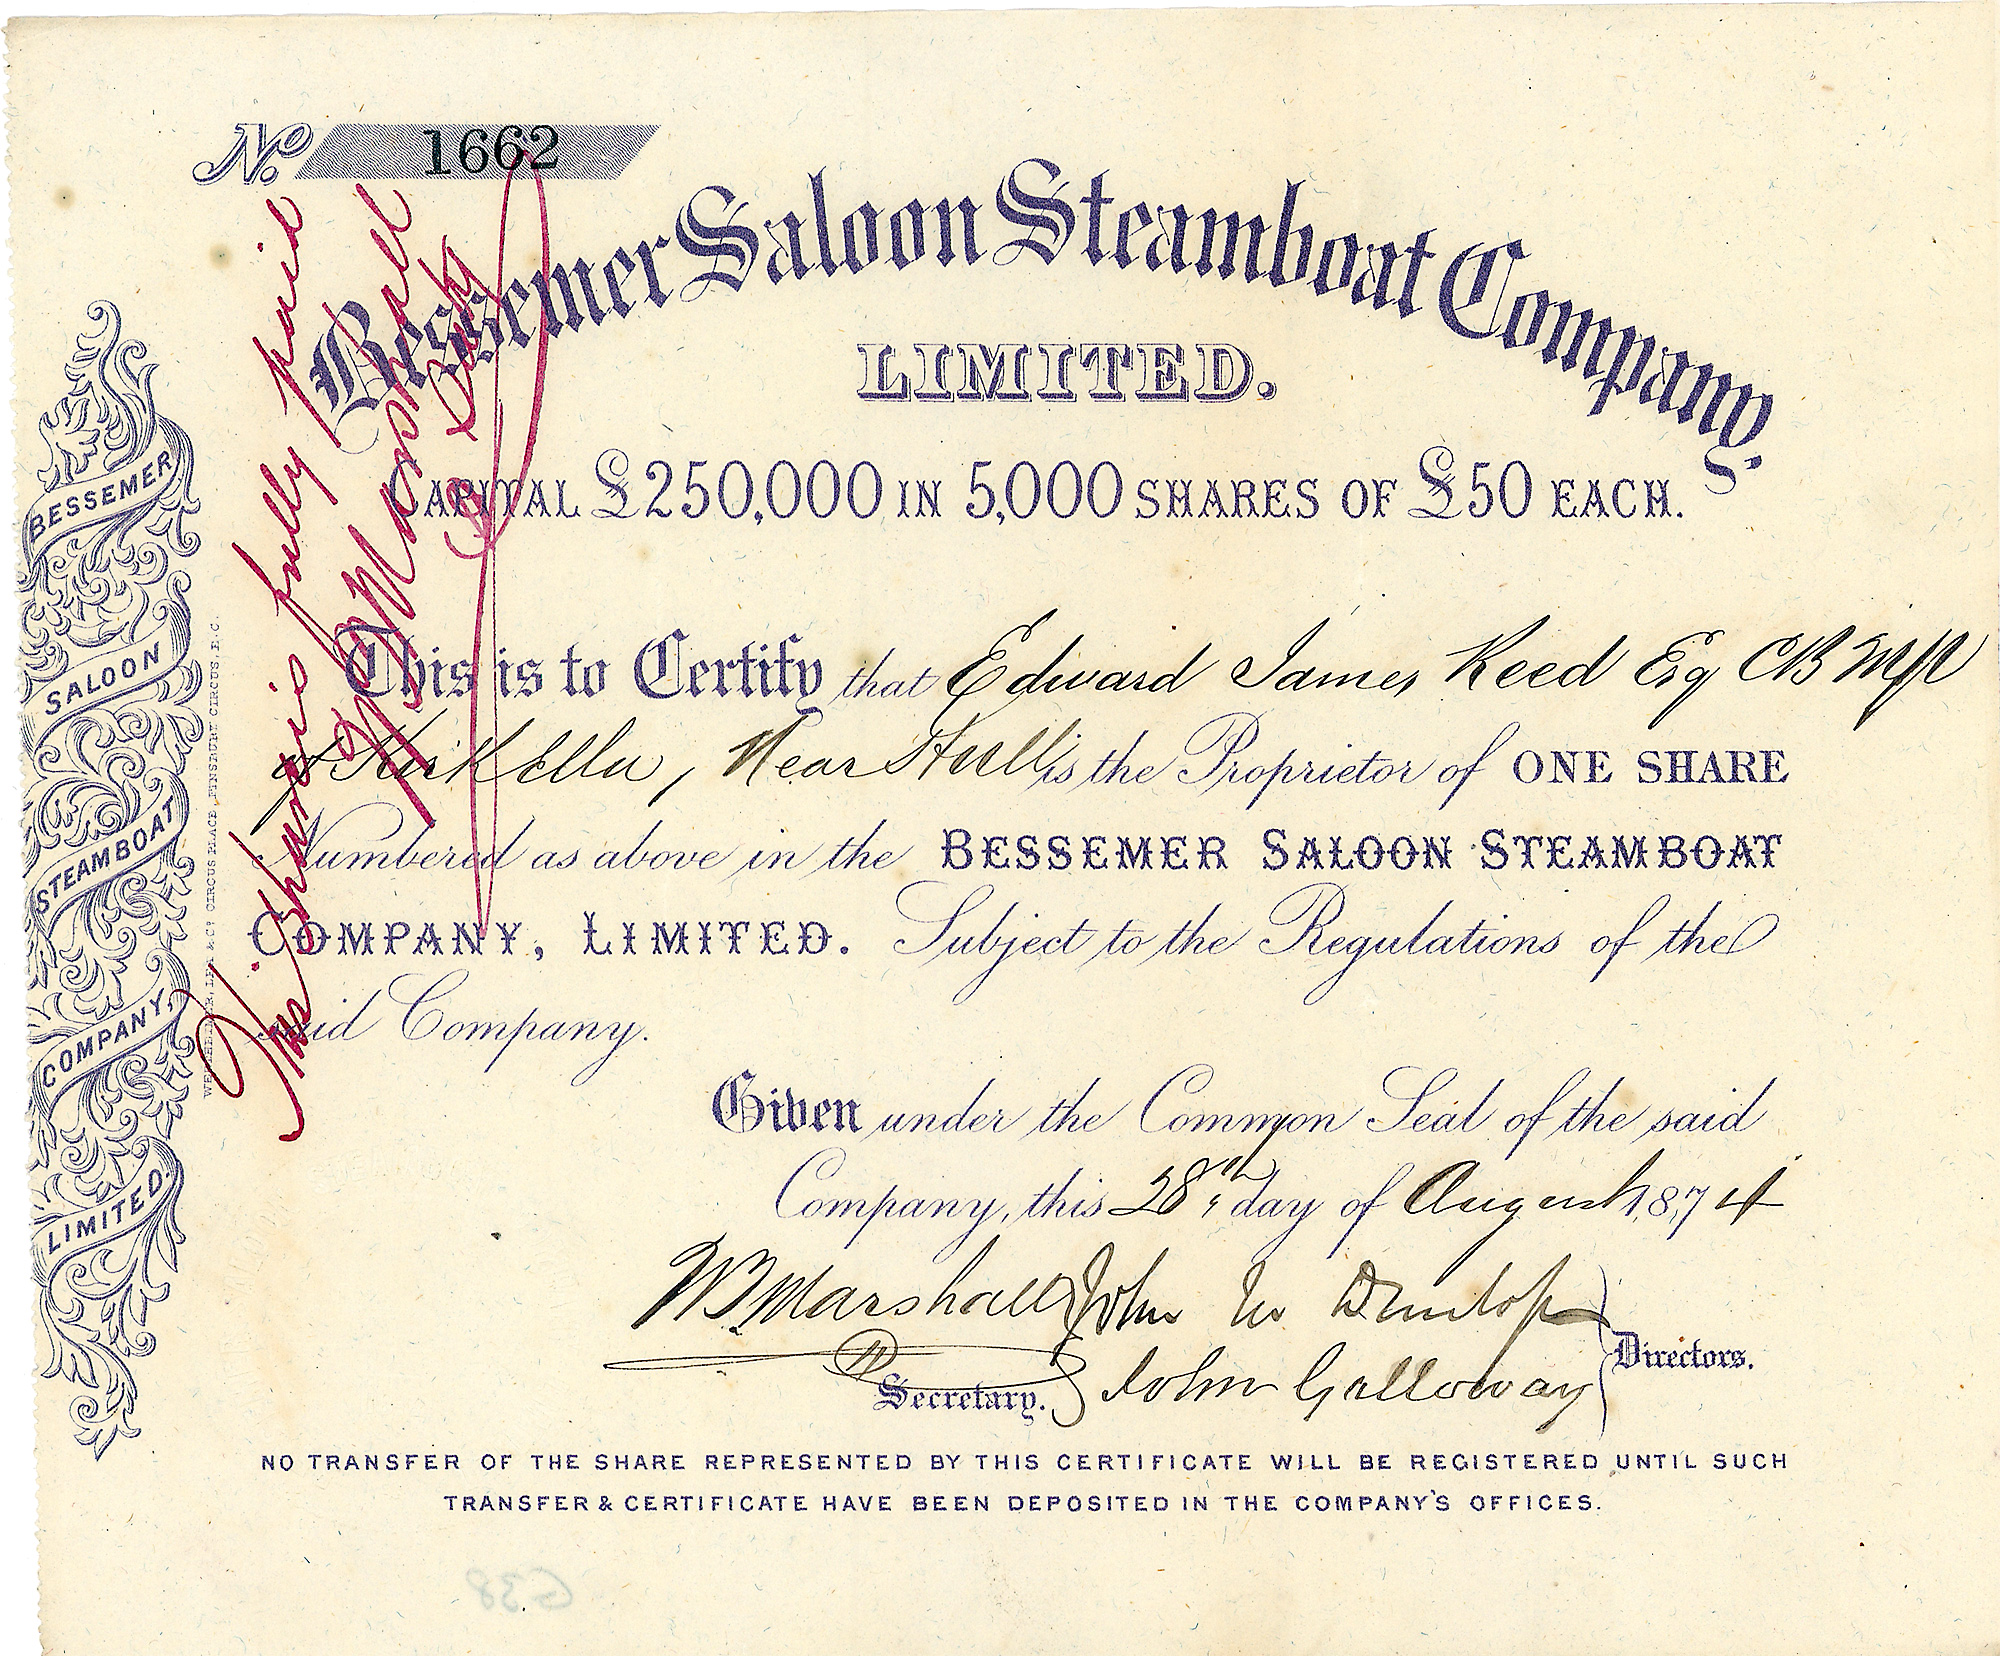 No. 1662
Bessemer Saloon Steamboat Company,
LIMITED.
CAPITAL £250,000 IN 5,000 SHARES OF £50 EACH.
This is to Certify that Edward James Reed Esq CB MP
of Kirk Ella, Near Hull is the Proprietor of ONE SHARE
Numbered as above in the BESSEMER SALOON STEAMBOAT
COMPANY, LIMITED. Subject to the Regulations of the
said Company.
Given under the Common Seal of the said
Company, this 28th day of August 1874
W Marshall John W Dunlop
Secretary. John Galloway Directors.
NO TRANSFER OF THE SHARE REPRESENTED BY THIS CERTIFICATE WILL BE REGISTERED UNTIL SUCH
TRANSFER & CERTIFICATE HAVE BEEN DEPOSITED IN THE COMPANY'S OFFICES.
This share is fully paid
W Marshall
Secretary
BESSEMER
SALOON
STEAMBOAT
COMPANY,
LIMITED.
CIRCUS PLACE, FINSBURY CIRCUS, E.C.
G38